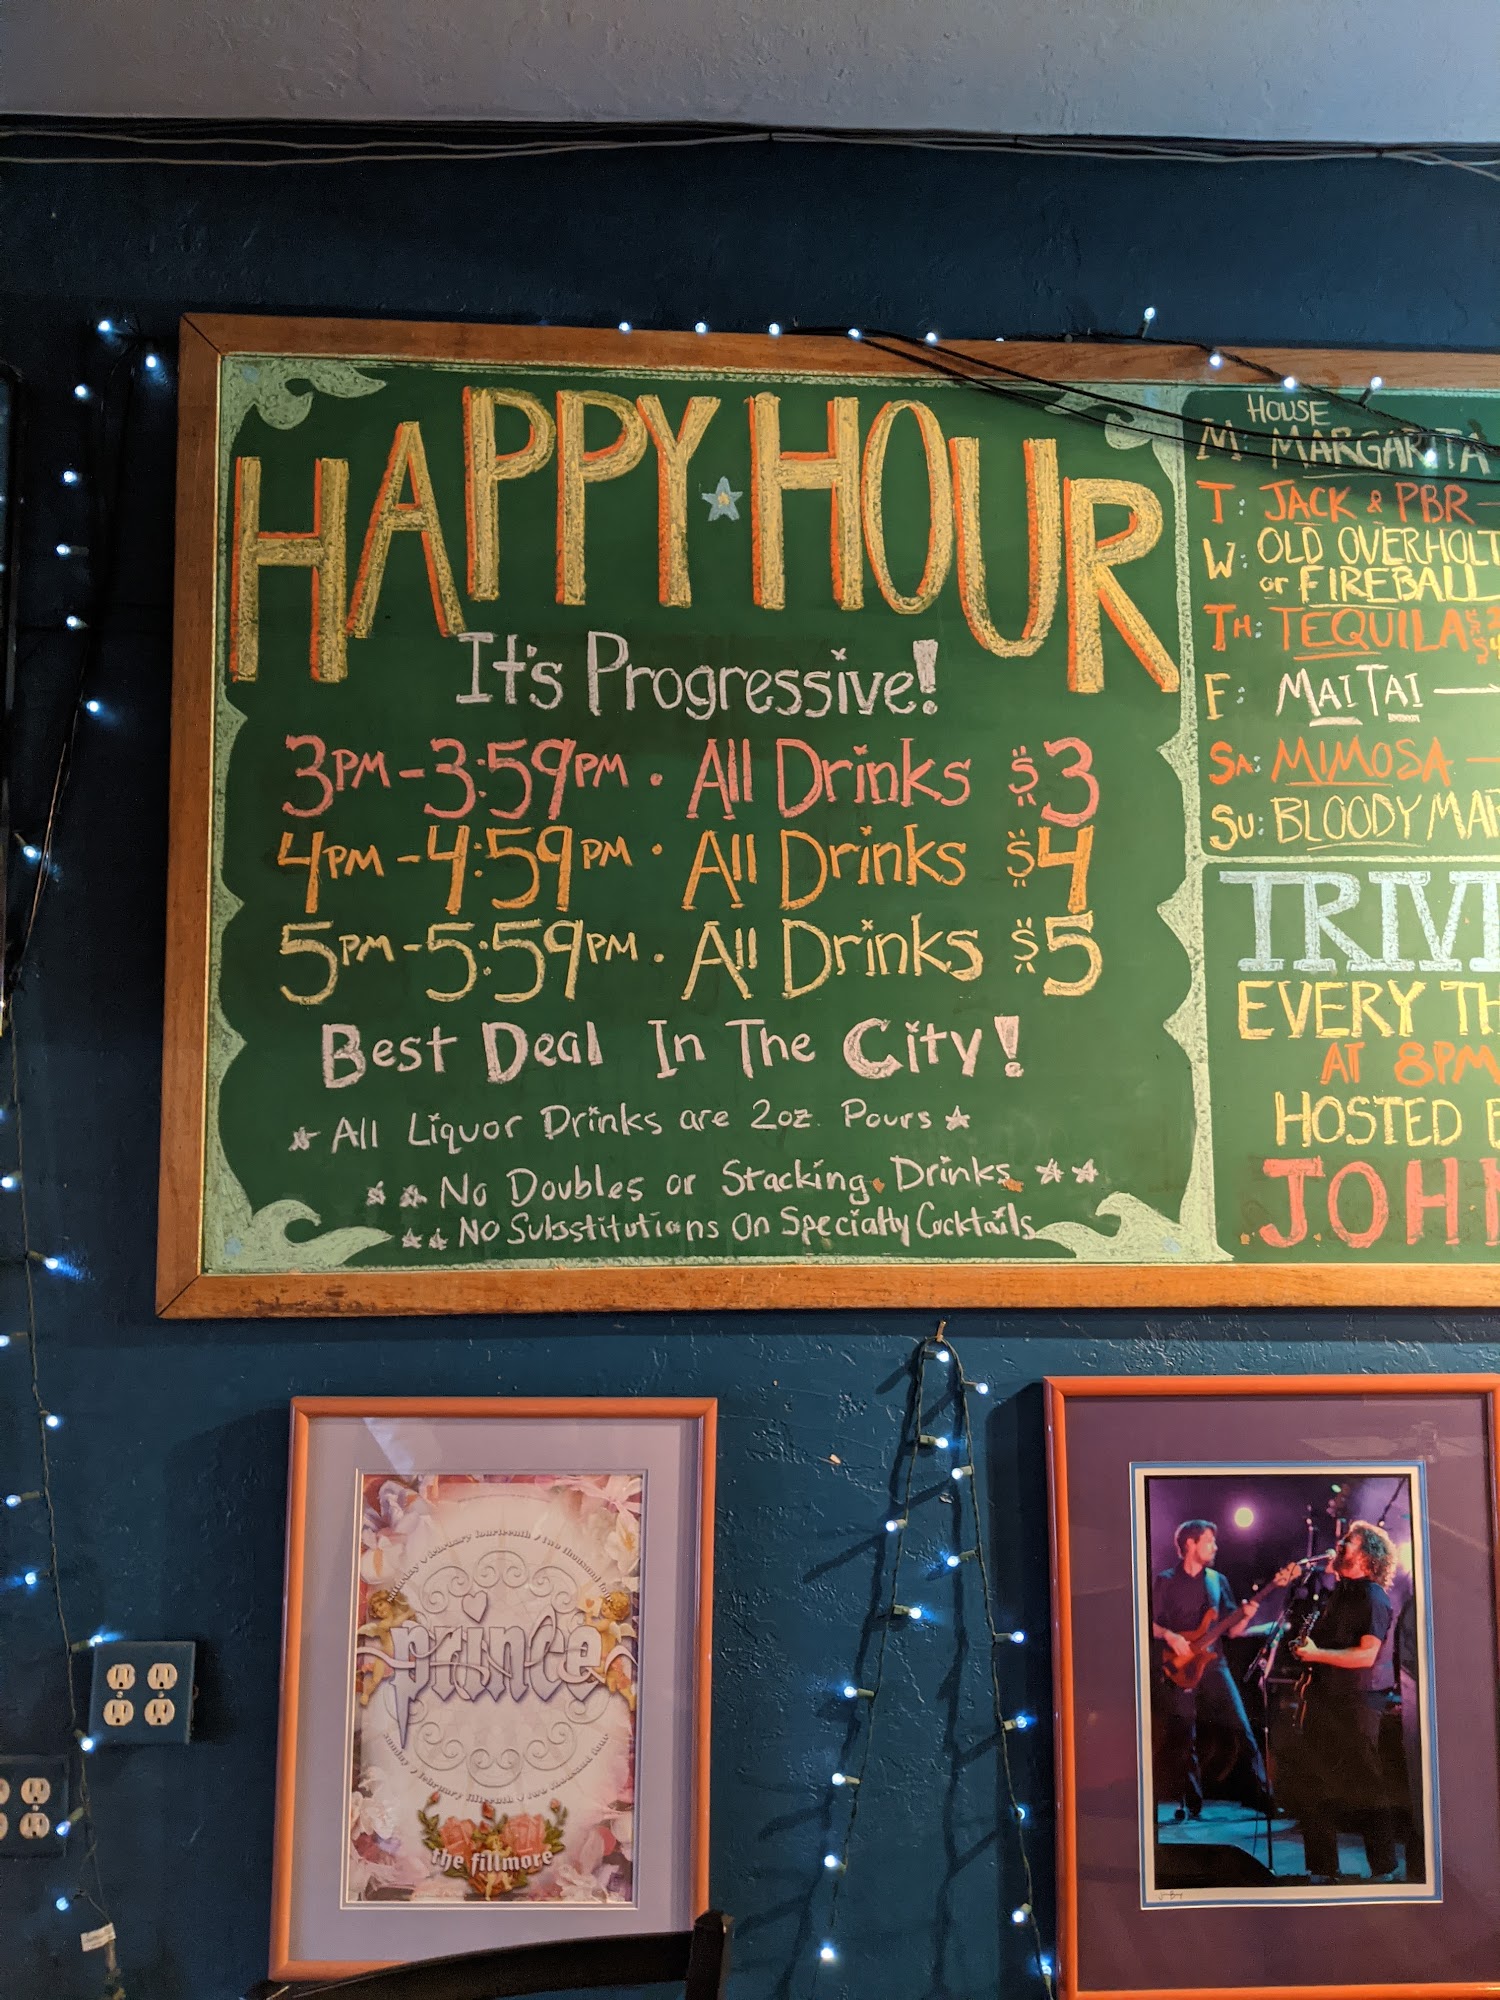 HAPPY HOUR
It's Progressive!
3PM - 3:59PM · All Drinks $3
4PM - 4:59PM · All Drinks $4
5PM - 5:59PM · All Drinks $5
Best Deal In The City!
All Liquor Drinks are 2oz. Pours
No Doubles or Stacking Drinks
No Substitutions On Specialty Cocktails
M: HOUSE MARGARITA
T: JACK & PBR
W: OLD OVERHOLT
or FIREBALL
TH: TEQUILA
F: MAI TAI
SA: MIMOSA
SU: BLOODY MAR
TRIVI
EVERY TH
AT 8PM
HOSTED
JOHN
february fourteenth / two thousand
prince
sunday / february fifteenth / two thousand
the fillmore